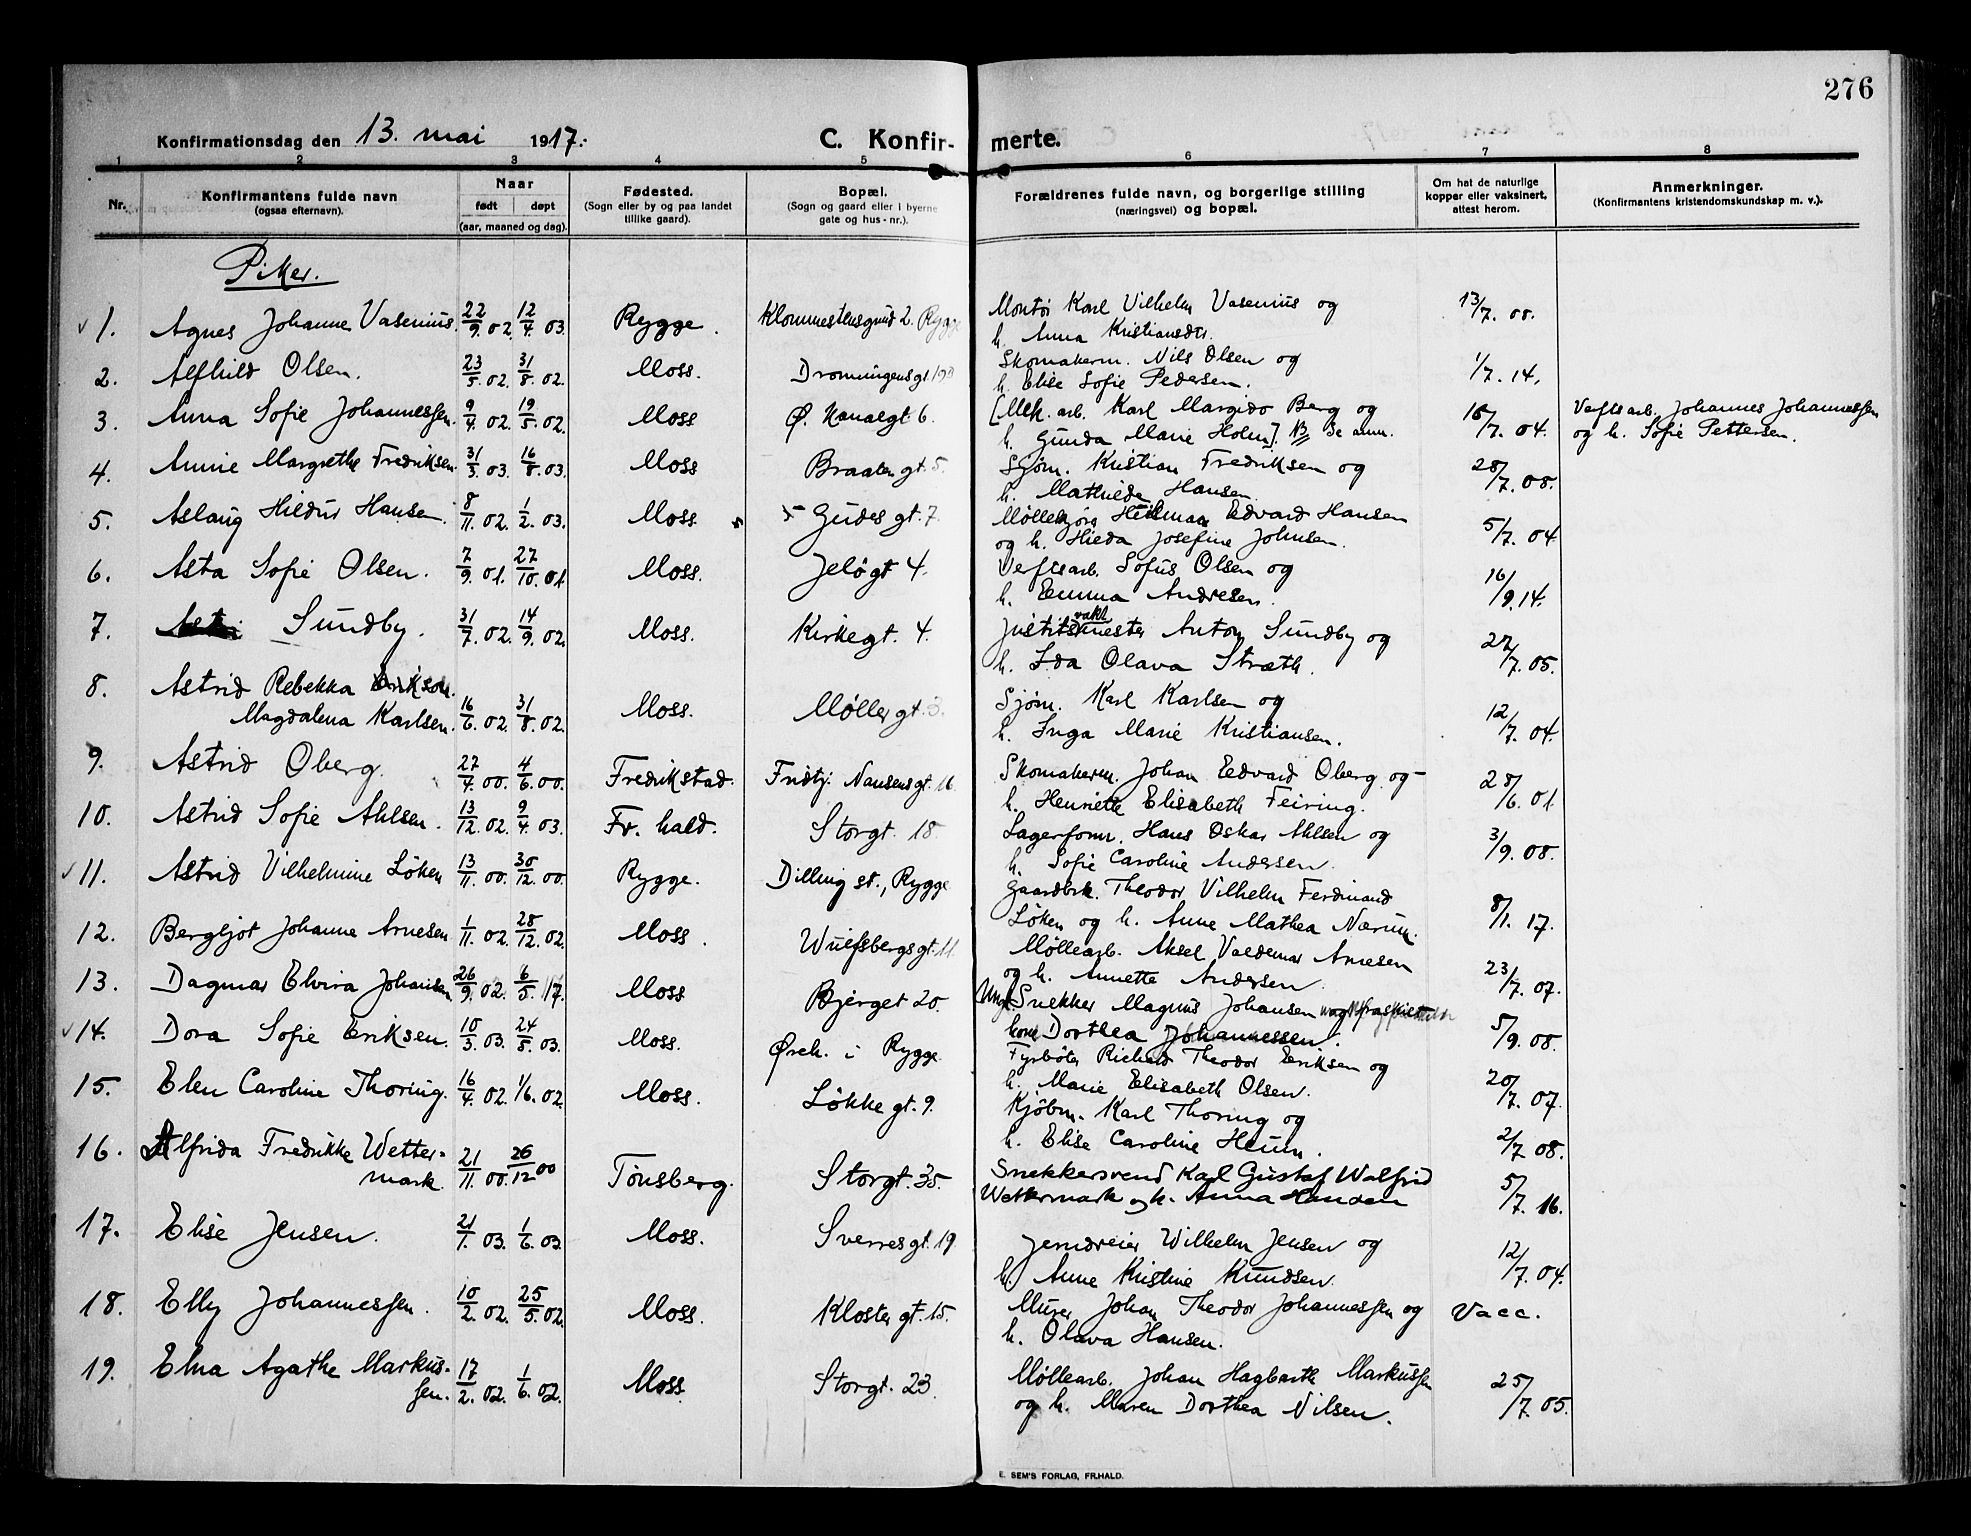 276
Konfirmationsdag den 13. mai 1917. C. Konfir- merte.
1 2 3 4 5 6 7 8
Nr. Konfirmantens fulde navn (ogsaa efternavn). Naar født døpt (aar, maaned og dag). Fødested. (Sogn eller by og paa landet tillike gaard). Bopæl. (Sogn og gaard eller i byerne gate og hus-nr.). Forældrenes fulde navn, og borgerlige stilling (næringsvei) og bopæl. Om hat de naturlige kopper eller vaksinert, attest herom. Anmerkninger. (Konfirmantens kristendomskundskap m. v.).
Piker.
1. Agnes Johanne Vasenius. 22/9. 02. 12/4. 03. Rygge. Klommestensgrud 2. Rygge Montør Karl Vilhelm Vasenius og 13/7. 08.
h. Anna Kristiansdtr.
2. Alfhild Olsen. 23/5. 02. 31/8. 02. Moss. Dronningensgt. Skomakerm. Nils Olsen og 1/7. 14.
h. Elise Sofie Pedersen.
3. Anna Sofie Johannessen. 9/4. 02. 19/5. 02. Moss Ø. Kanalgt 6. [Mek. arb. Karl Margido Berg og 16/7. 04. Verftsarb. Johannes Johannessen
h. Gunda Marie Holm]. NB se anm. og h. Sofie Pettersen.
4. Annie Margrethe Fredriksen. 31/3. 03. 16/8. 03. Moss Braatengt. 5. Sjøm. Kristian Fredriksen og 28/7. 08.
h. Mathilde Hansen.
5. Aslaug Hildur Hansen. 8/11. 02. 1/2. 03. Moss Gudes gt. 7. Møllegjørs Hilmar Edvard Hansen 5/7. 04
og h. Hilda Josefine Johnsen.
6. Asta Sofie Olsen. 7/9. 01. 27/10. 01. Moss. Jeløgt 4. Veftsarb. Sofus Olsen og 16/9. 14.
h. Emma Andresen.
7. Sundby. 31/7. 02. 14/9. 02. Moss. Kirkegt. 4. Justitsvaktmester Anton Sundby og 27/7. 05.
h. Ida Olava Stræth.
8. Astrid Rebekka Erikson.
Magdalena Karlsen. 16/6. 02. 31/8. 02. Moss. Møllergt. 3. Sjøm. Karl Karlsen og 12/7. 04.
h. Inga Marie Kristiansen.
9. Astrid Oberg. 27/4. 00. 4/6. 00. Fredrikstad. Fridtj. Nansensgt. 16 Skomakerm. Johan Edvard Oberg og 28/6. 01.
h. Henriette Elisabeth Feiring.
10. Astrid Sofie Ahlsen. 13/12. 02. 9/4. 03. Fr. hald. Storgt. 18. Lagerform. Hans Oskar Ahlsen og 3/9. 08.
h. Sofie Caroline Andersen.
11. Astrid Vilhelmine Löken 13/11. 00. 30/12. 00. Rygge. Dilling st., Rygge Gaardbrk. Theodor Vilhelm Ferdinand 8/1. 17.
Löken og h. Anne Mathea Nærum.
12. Bergljot Johanne Arnesen 1/11. 02. 28/12. 02. Moss. Wulfsbergsgt. 11. Møllearb. Aksel Valdemar Arnesen 23/7. 07.
og h. Annette Andersen.
13. Dagmar Elvira Johansen 26/9. 02. 6/5. 17. Moss Bjerget 20. Ungk. Snekker Magnus Johansen 5/9. 08.
Dorthea Johannessen.
14. Dora Sofie Eriksen. 10/3. 03. 24/5. 03. Moss. Øreh. i Rygge Fyrbøter Richard Theodor Eriksen og 20/7. 07.
h. Marie Elisabeth Olsen.
15. Elen Caroline Thoring. 16/4. 02. 1/6. 02. Moss. Løkkegt. 9. Kjöbm. Karl Thoring og 2/7. 08.
h. Elise Caroline Heum.
16. Alfrida Fredrikke Wetter-
mark. 21/11. 00. 26/12 00 Tønsberg. Storgt. 35. Snekkersvend Karl Gustaf Walfrid 5/7. 16.
Wettermark og h. Anna Hansen
17. Elise Jensen. 21/1. 03. 1/6. 03. Moss. Sverresgt. 19. Jerndreier Wilhelm Jensen og 12/7. 04.
h. Anne Kristine Knudsen.
18. Elly Johannessen. 10/2. 02. 25/5. 02. Moss. Klostergt. 15. Murer Johan Theodor Johannessen og Vacc.
h. Olava Hansen.
19. Elna Agathe Markus-
sen. 17/2. 02. 1/6. 02. Moss. Storgt. 23. Møllearb. Johan Hagbarth Markussen 25/7. 05.
og h. Maren Dorthea Nilsen.
E. SEM'S FORLAG, FR.HALD.